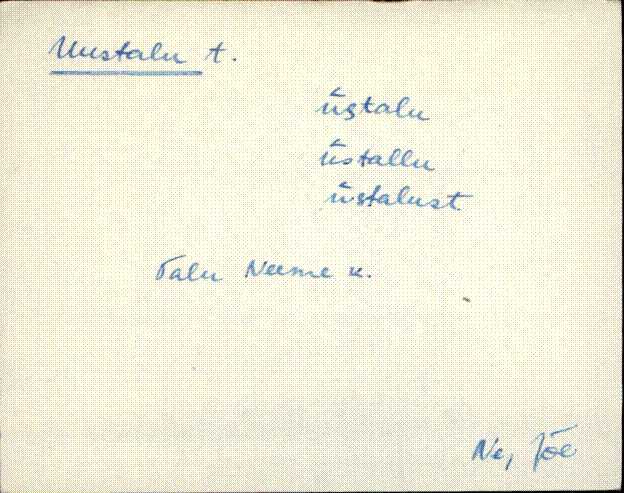 Uustalu t.
ūstalu
ūstallu
ūstalust
Talu Neeme k.
Ne, Jõe